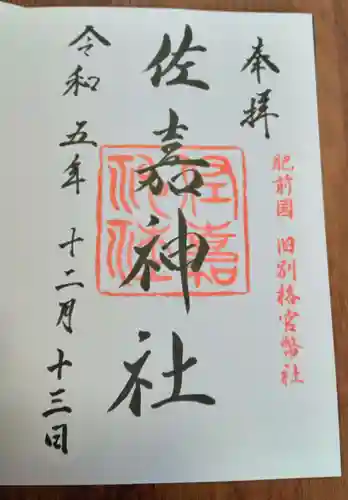 奉拝
肥前国 旧別格官幣社
佐嘉神社
令和五年 十二月 十三日